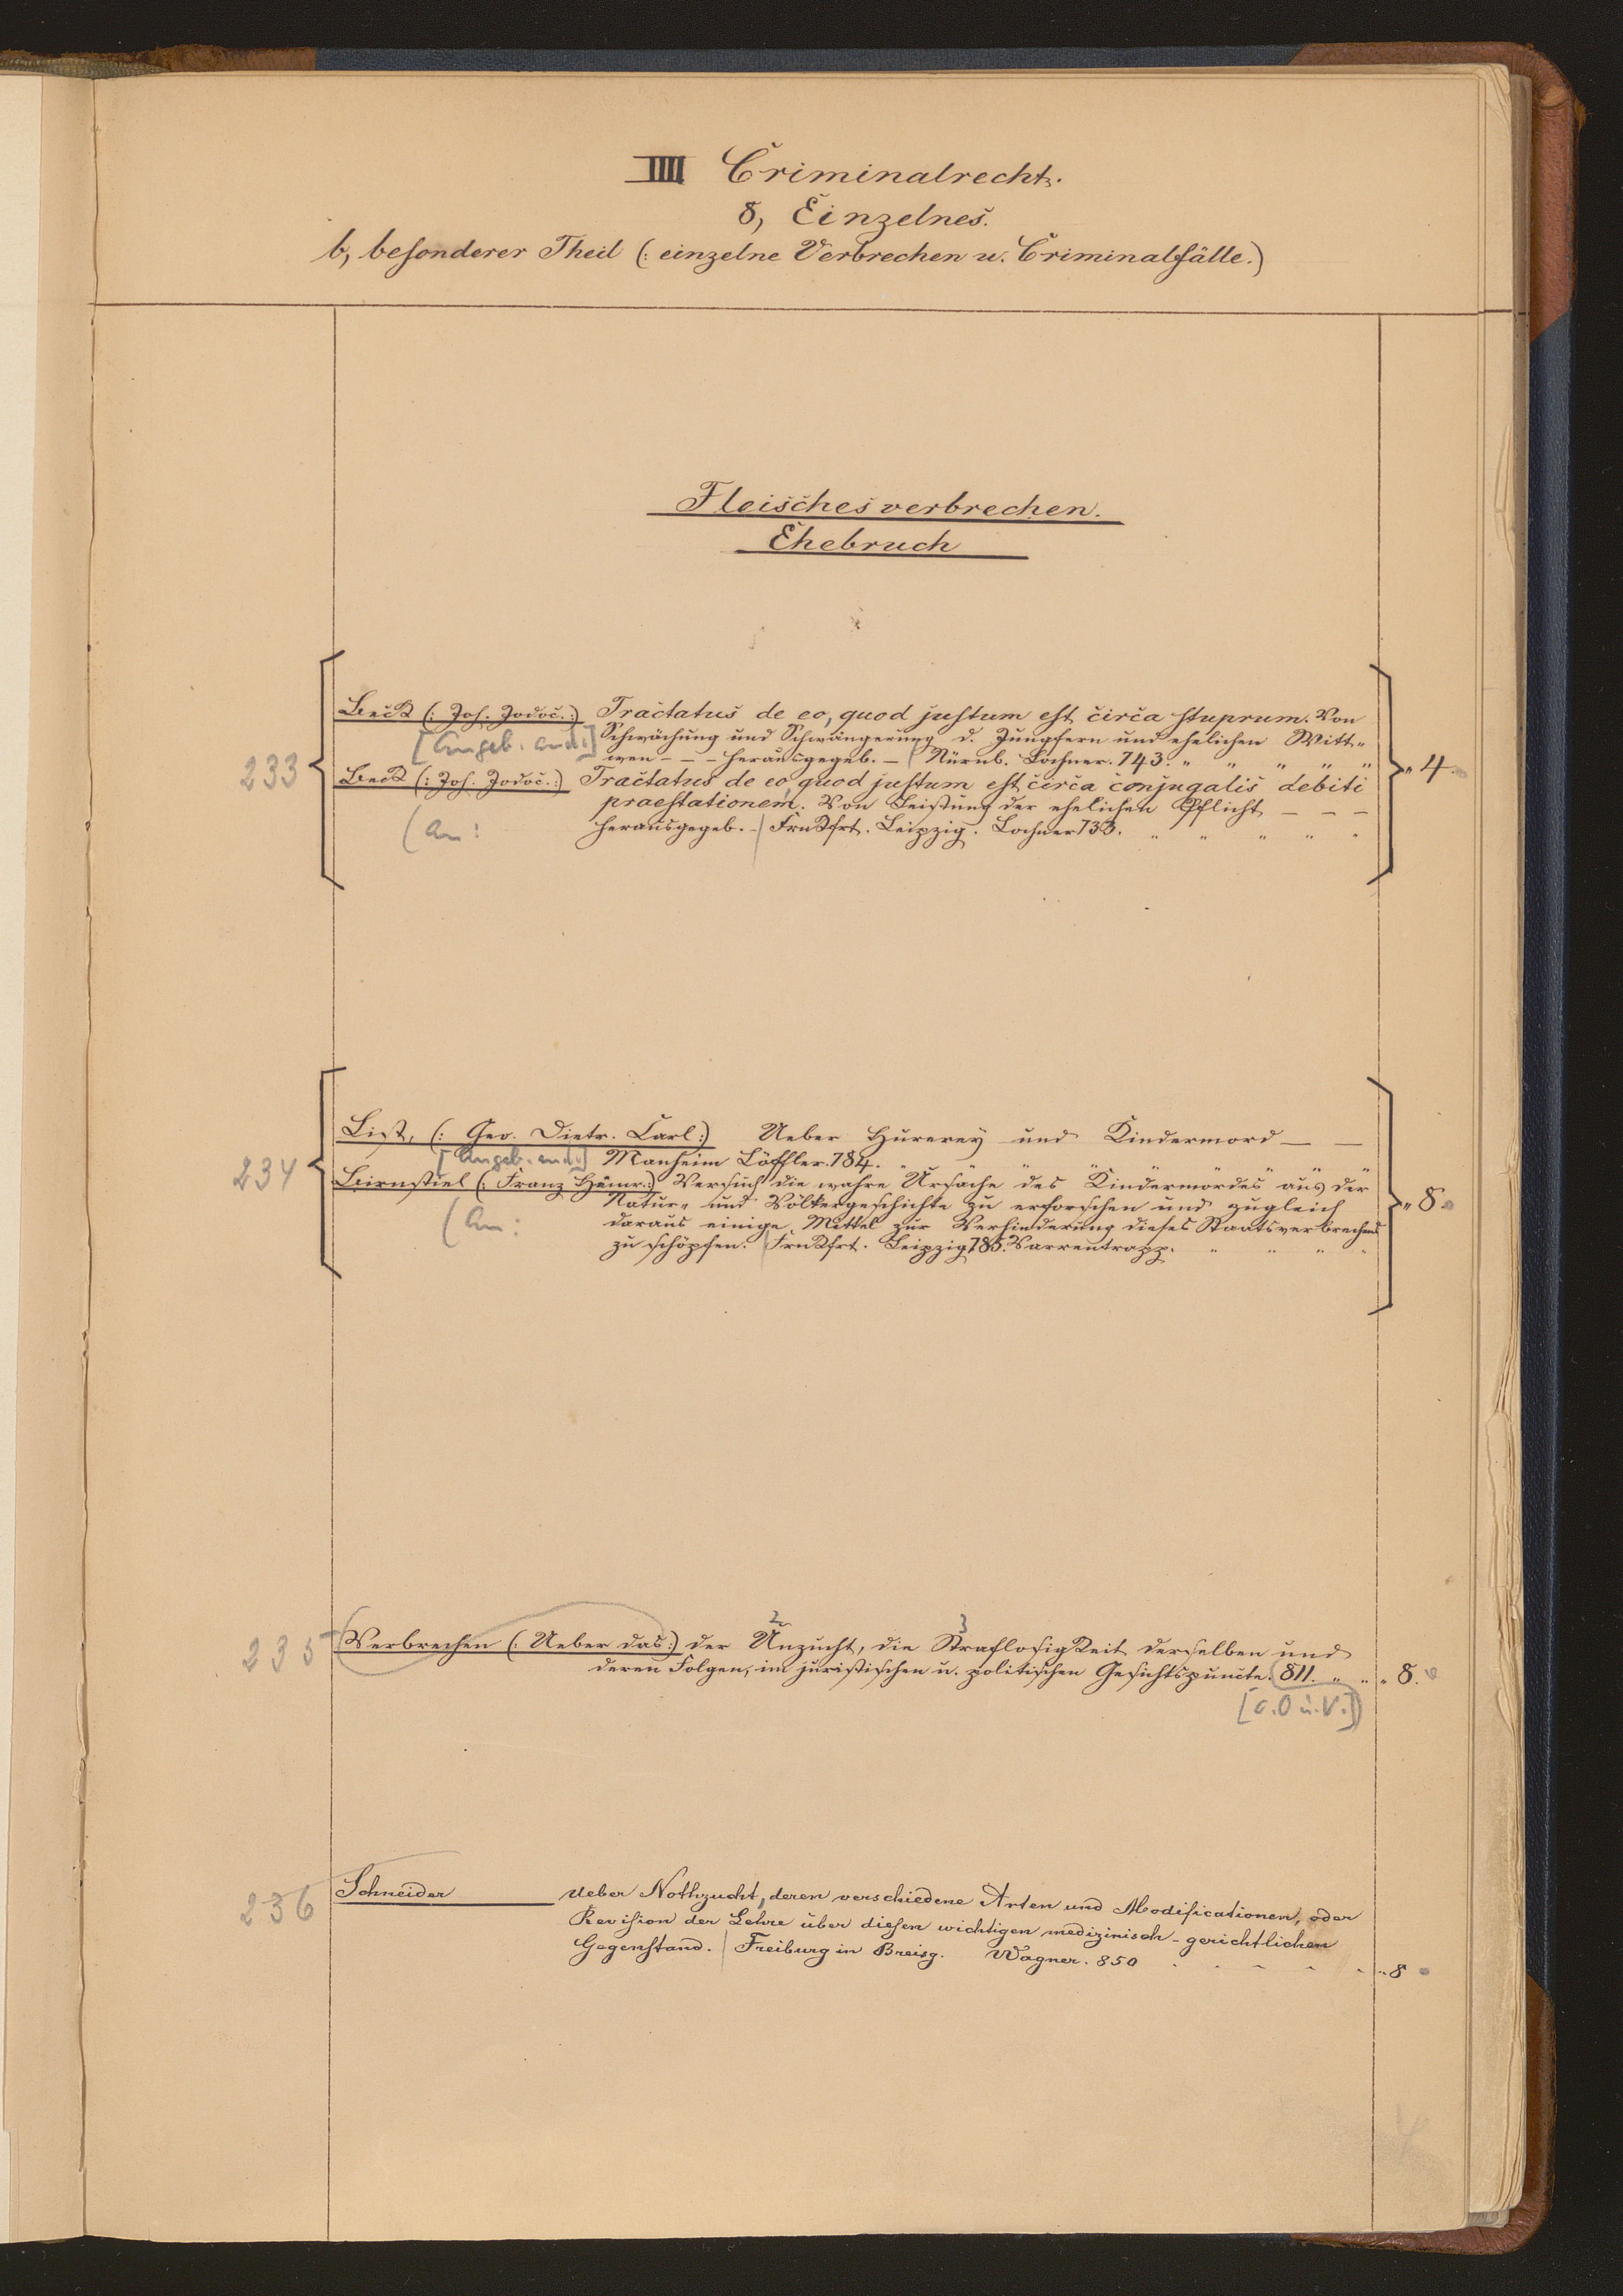 IIII Criminalrecht.
8, Einzelnes.
b, besonderer Theil (: einzelne Verbrechen u. Criminalfälle.)
Fleischesverbrechen.
Ehebruch
Beck (: Joh. Jodoc. :) Tractatus de eo, quod justum est circa stuprum. Von
[Angeb. and:] Schwächung und Schwängerung d. Jungfern und ehelichen Witt-
233 wen - - - herausgegeb. - Nürnb. Lochner. 743. " " " " " " 4.
Beck (: Joh. Jodoc. :) Tractatus de eo, quod justum est circa conjugalis debiti
praestationem. Von Leistung der ehelichen Pflicht - - -
(An: herausgegeb. - Frnkfrt. Leipzig. Lochner 733. " " " " "
List, (: Geo. Dietr. Carl :) Ueber Hurerey und Kindermord - -
[Angeb. and:] Manheim Löffler. 784. " " " " " " " "
234 Birnstiel (: Franz Heinr. :) Versuch die wahre Ursache des Kindermordes aus der
Natur- und Völkergeschichte zu erforschen und zugleich " 8
(An: daraus einige Mittel zur Verhinderung dieses Staatsverbrechens
zu schöpfen. Frnkfrt. Leipzig 785. Varrentrapp. " " " "
2 3
235 Verbrechen (: Ueber das :) der Unzucht, die Straflosigkeit derselben und
deren Folgen, im juristischen u. politischen Gesichtspuncte. 811. " " " 8.
[o. O u. V.]
236 Schneider Ueber Nothzucht, deren verschiedene Arten und Modificationen, oder
Revision der Lehre über diesen wichtigen medizinisch-gerichtlichen
Gegenstand. Freiburg in Breisg. Wagner. 850 " " " " " " 8